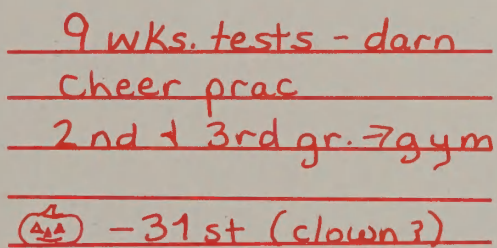 9 wks. tests - darn
cheer prac
2nd & 3rd gr. → gym
- 31st (clown?)